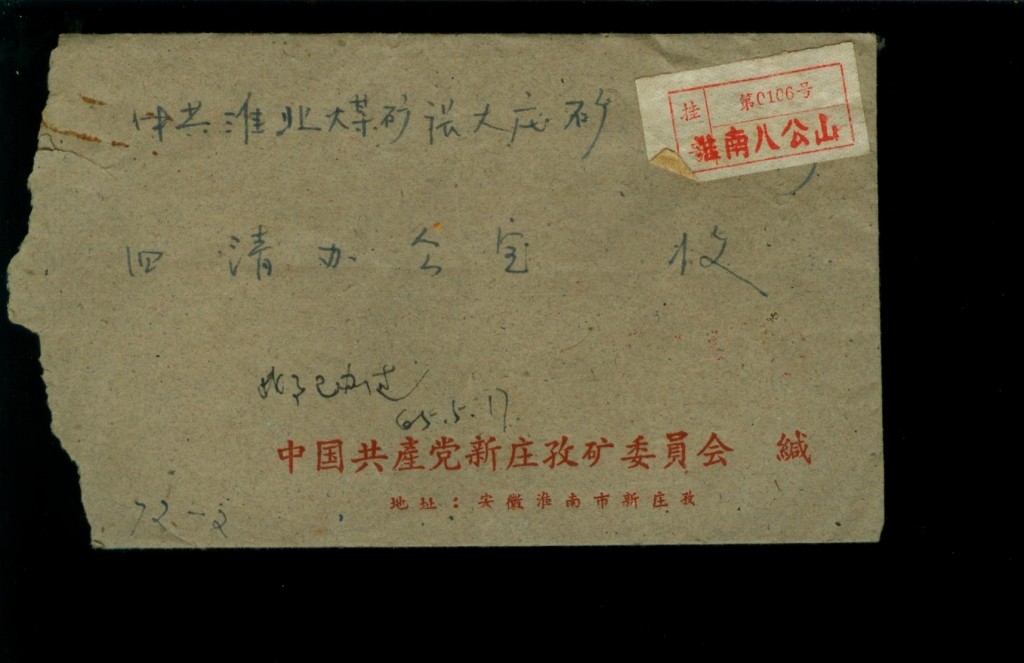 挂 第0106号
淮南八公山
中共淮北煤矿张大庄矿
四清办公室 收
此了已办过
65.5.17.
中国共產党新庄孜矿委員会 缄
地址：安徽淮南市新庄孜
72-